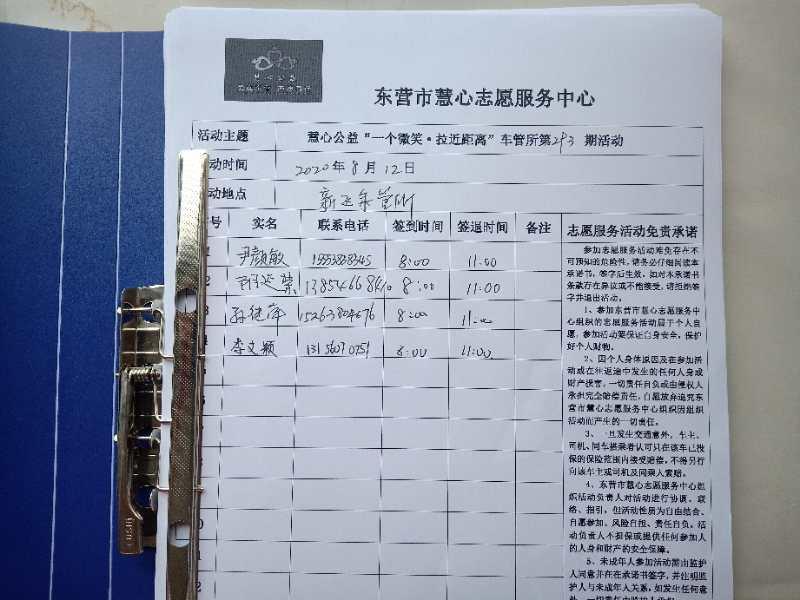 东营市慧心志愿服务中心
活动主题 慧心公益“一个微笑·拉近距离”车管所第243期活动
动时间 2020年8月12日
动地点
号 实名 联系电话 签到时间 签退时间 备注 志愿服务活动免责承诺
尹颜敏 8:00 11:00
2 8:00 11:00
8:00 11:00
李文颖 8:00 11:00
参加志愿服务活动难免存在不
可预知的危险性，请务必仔细阅读本
承诺书，签字后生效。如对本承诺书
条款存在异议或不能接受，请拒绝签
字并退出活动。
1、参加东营市慧心志愿服务中
心组织的志愿服务活动属于个人自
愿，参加活动要保证自身安全，保护
好个人财物。
2、因个人身体原因及在参加活
动或在往返途中发生的任何人身或
财产损害，一切责任自负或由侵权人
承担完全赔偿责任，自愿放弃追究东
营市慧心志愿服务中心组织因组织
活动而产生的一切责任。
3、一旦发生交通意外，车主、
司机、同车搭乘者认可只在该车已投
保的保险范围内接受赔偿，不得另行
向该车主或司机及同乘人索赔。
4、东营市慧心志愿服务中心组
织活动负责人对活动进行协调、联
络、指引，但活动性质为自由结合、
自愿参加、风险自担、责任自负，活
动负责人不担保或提供任何参加人
的人身和财产的安全保障。
5、未成年人参加活动需由监护
人同意并在在承诺书签字，并注明监
护人与未成年人关系，如发生任何意